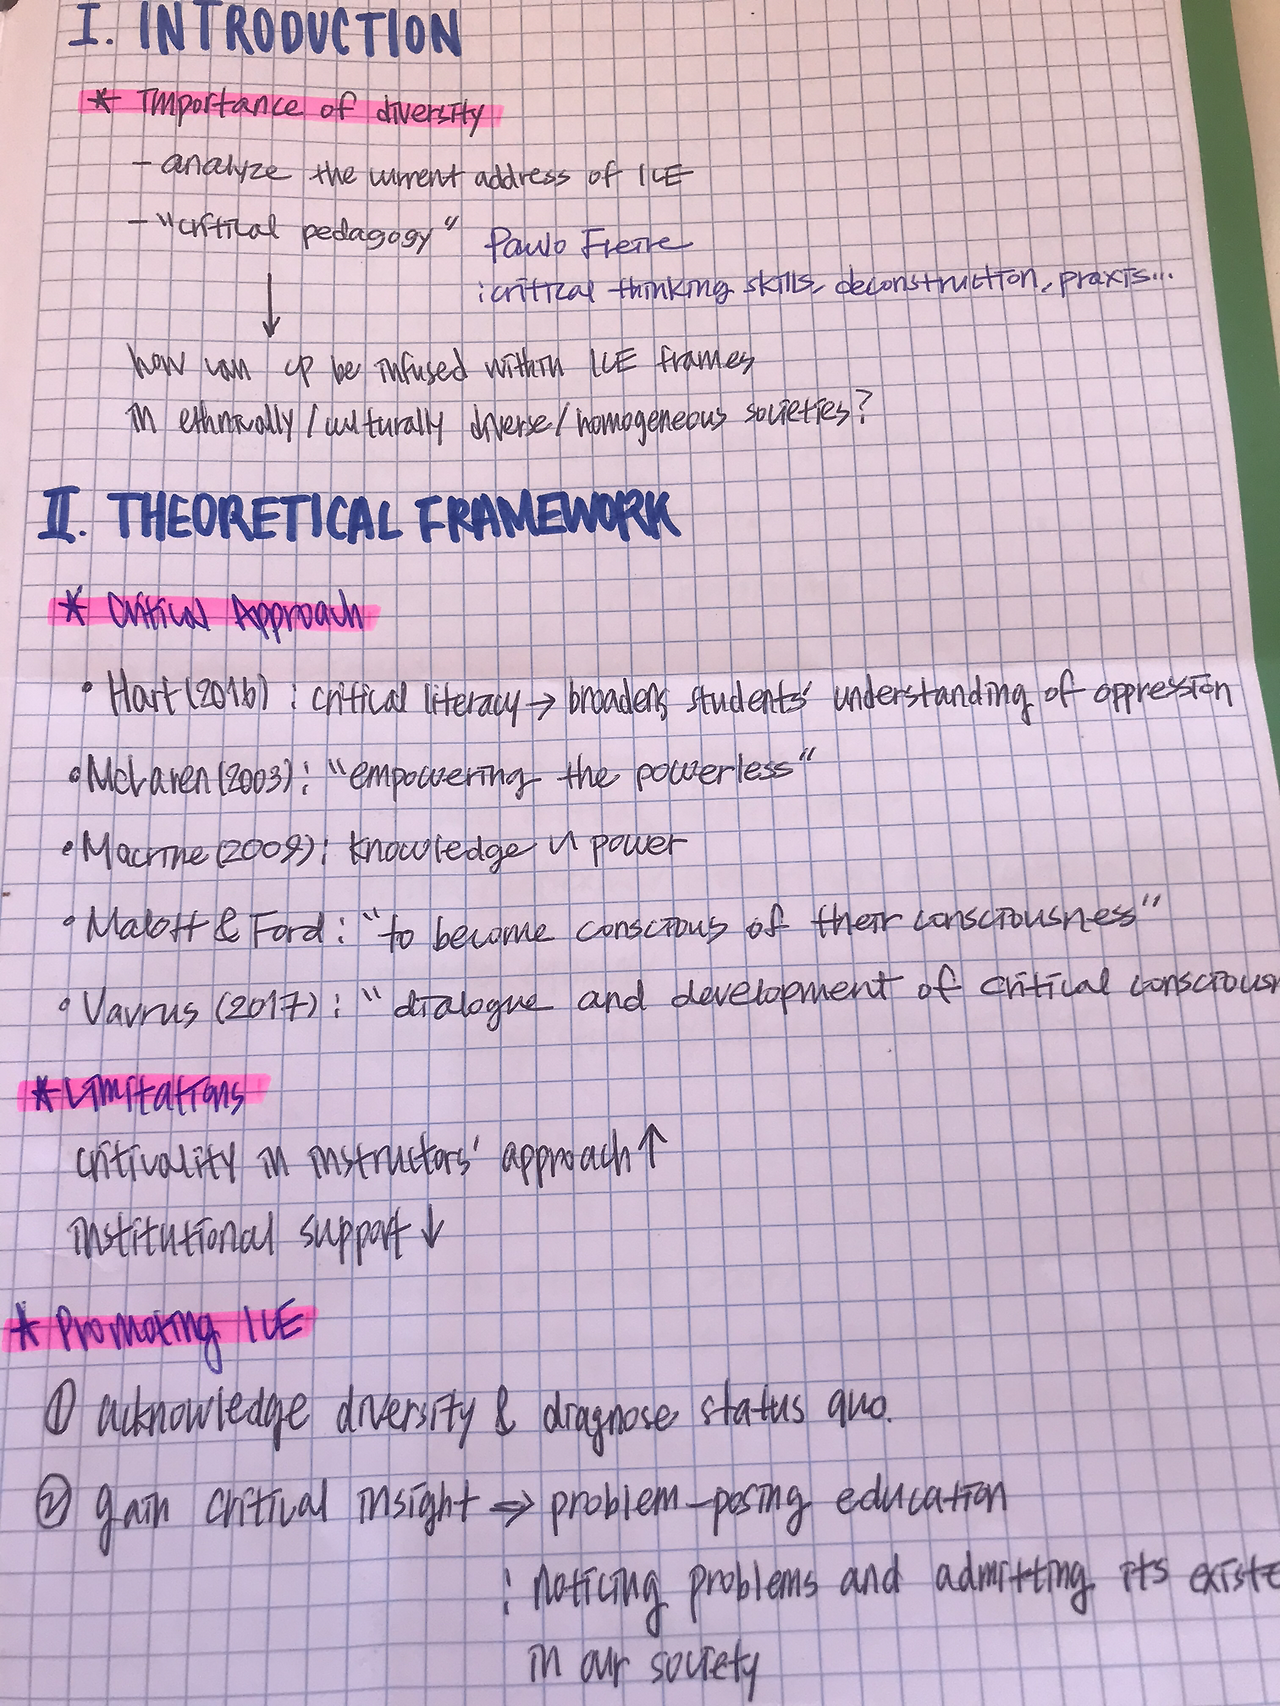 I. INTRODUCTION
* Importance of diversity
- analyze the current address of ICE
- "critical pedagogy" Paulo Freire
: critical thinking skills, deconstruction, praxis...
↓
how can cp be infused within ICE frames
in ethnically/culturally diverse/homogeneous societies?
II. THEORETICAL FRAMEWORK
* Critical Approach
• Hart (2016) : critical literacy → broadens students' understanding of oppression
• McLaren (2003) : "empowering the powerless"
• Macrine (2009) : knowledge n power
• Malott & Ford : "to become conscious of their consciousness"
• Vavrus (2017) : "dialogue and development of critical consciousn
* Limitations
criticality in instructors' approach ↑
institutional support ↓
* Promoting ICE
① acknowledge diversity & diagnose status quo.
② gain critical insight ⇒ problem-posing education
: noticing problems and admitting its existe
in our society